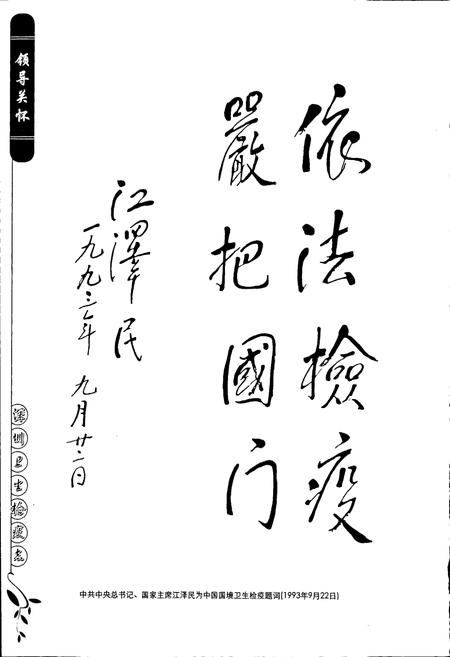 领导关怀
依法檢疫
嚴把國门
江澤民
一九九三年 九月廿二日
深圳卫生检疫志
中共中央总书记、国家主席江泽民为中国国境卫生检疫题词(1993年9月22日)